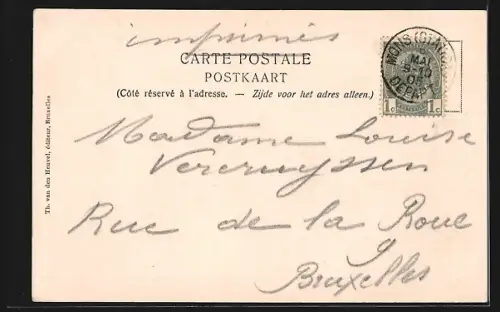 imprimés
CARTE POSTALE
POSTKAART
(Côté réservé à l'adresse. — Zijde voor het adres alleen.)
MONS (STATION)
MAI
8-10
DEPART
1c 1c
Madame Louise
Vercruyssen
Rue de la Roue
9
Bruxelles
Th. van den Heuvel, éditeur, Bruxelles